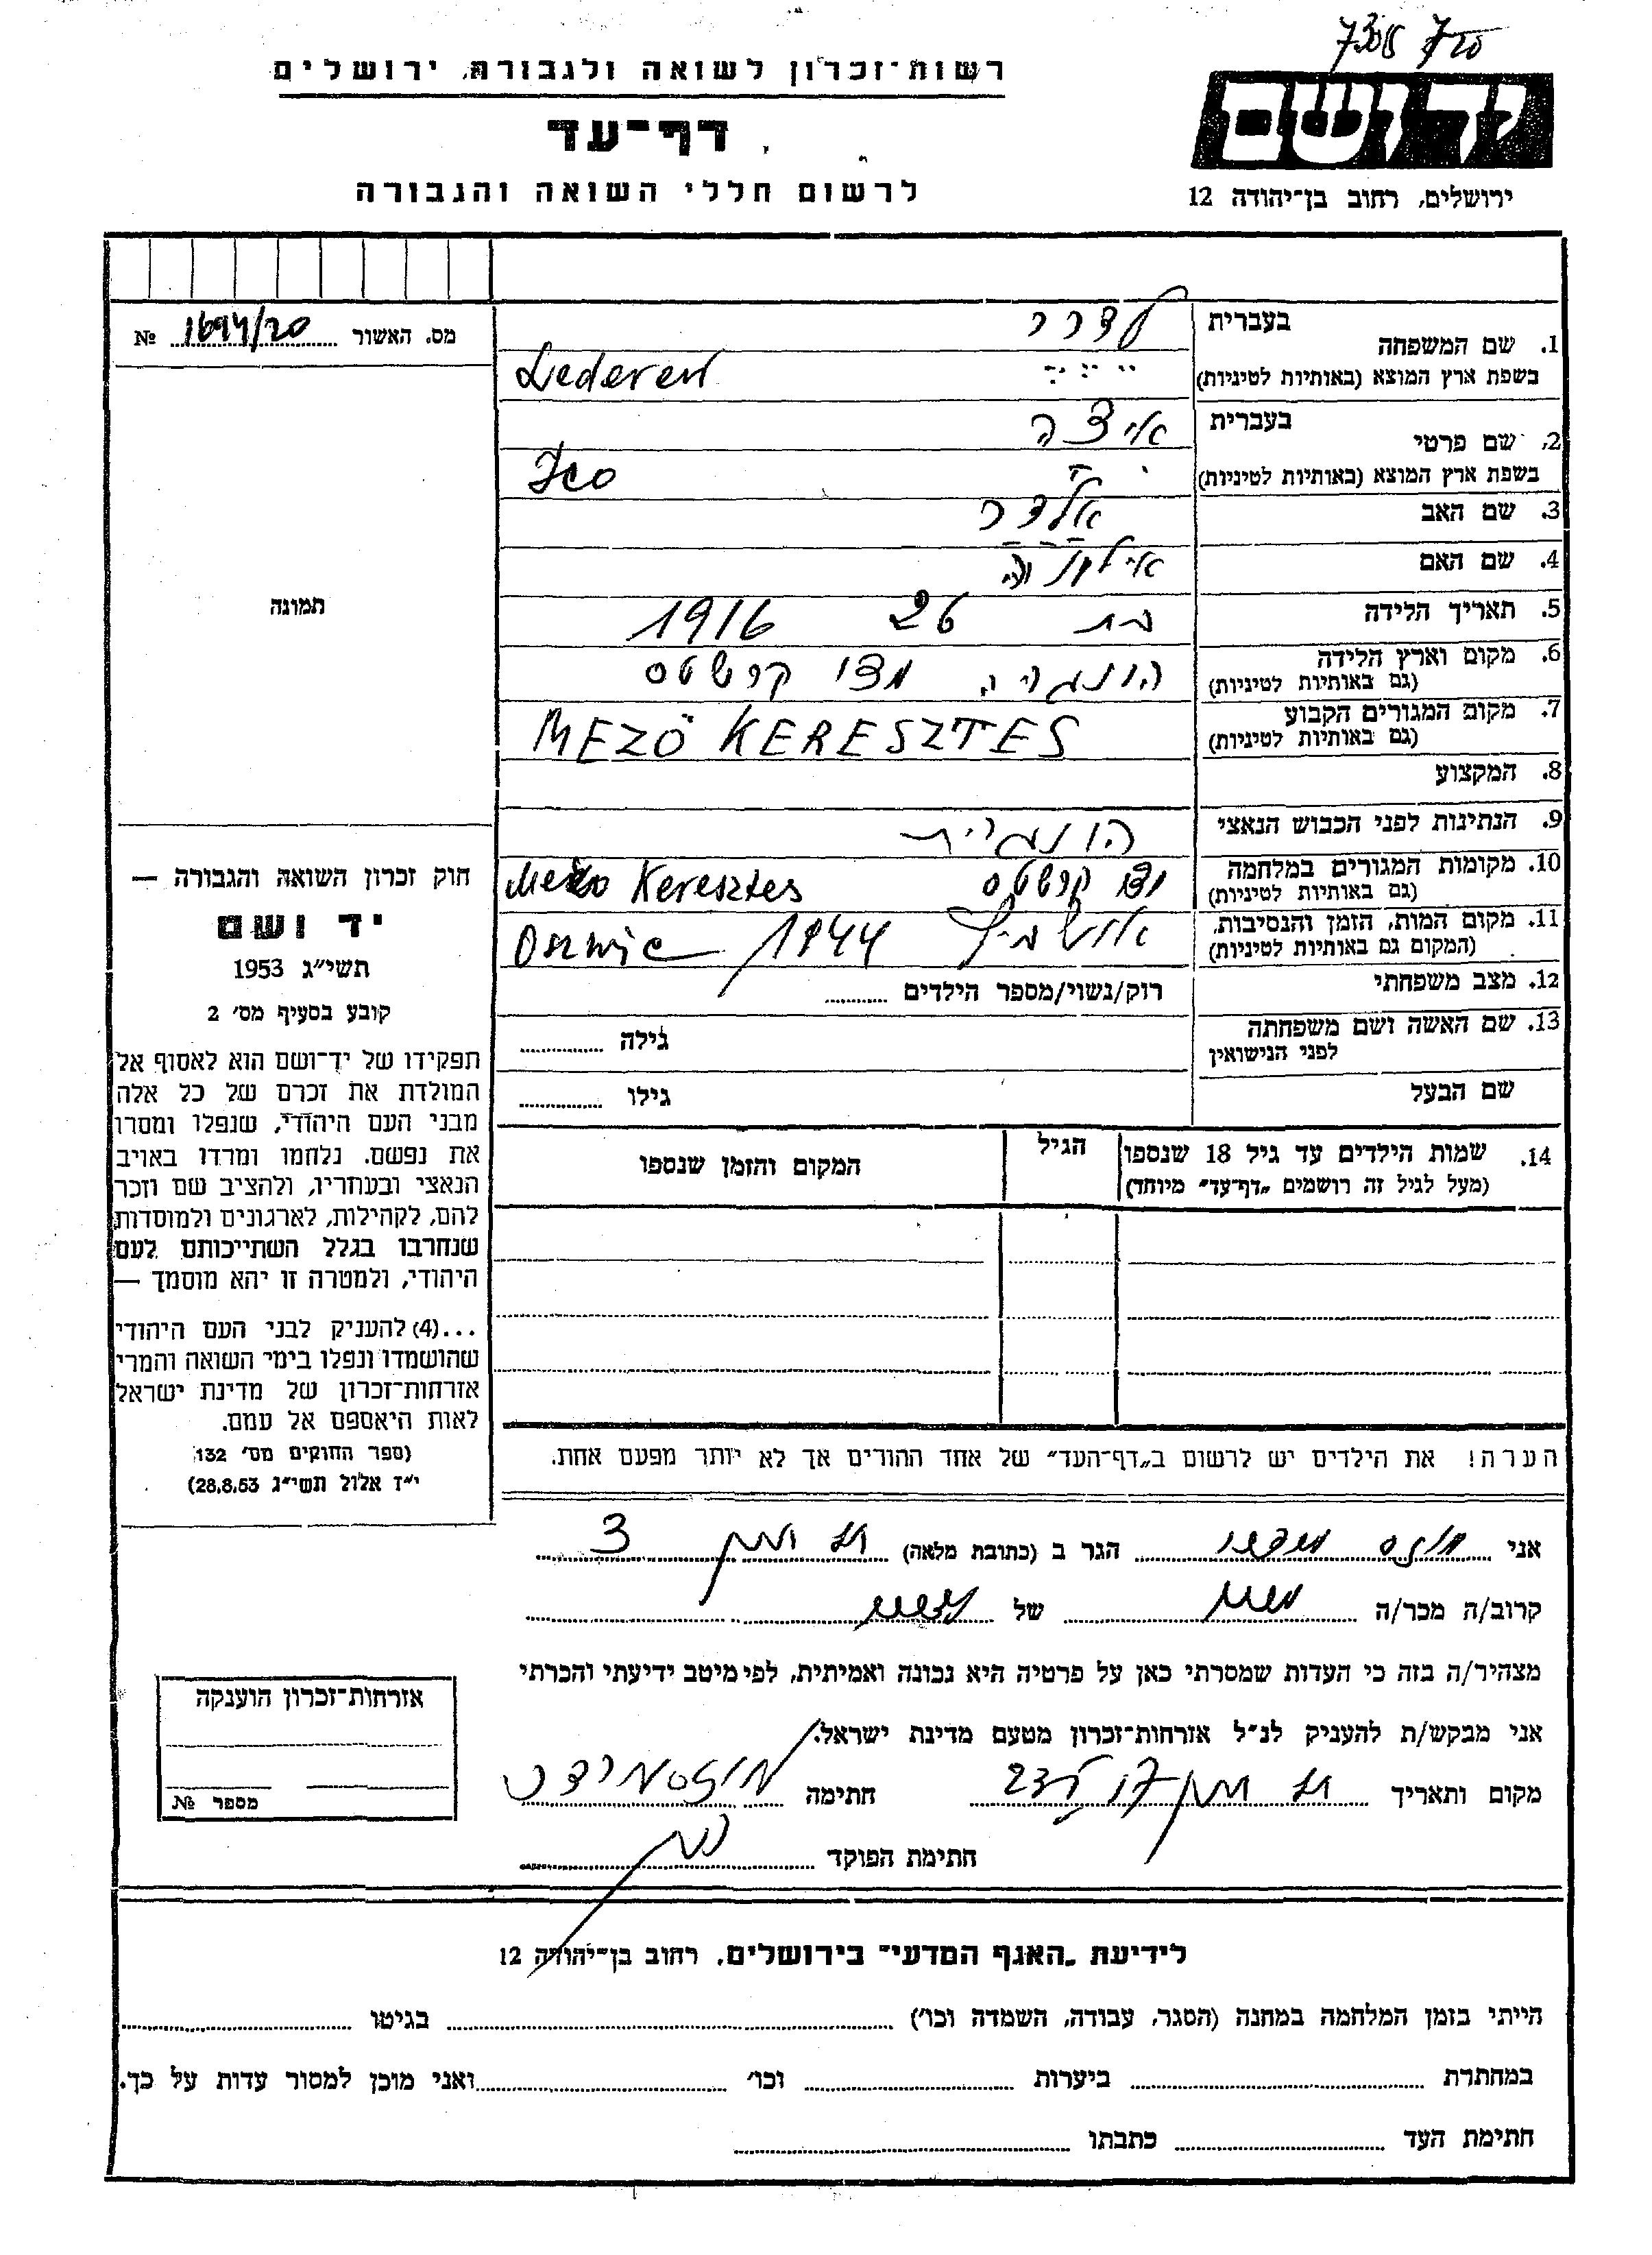 7308
רשות-זכרון לשואה ולגבורה, ירושלים
יד ושם
דף-עד
ירושלים, רחוב בן-יהודה 12
לרשום חללי השואה והגבורה
מס. האשור 1694/20 №
1. שם המשפחה
בעברית לדרר
בשפת ארץ המוצא (באותיות לטיניות) Lederer
2. שם פרטי
בעברית איצה
בשפת ארץ המוצא (באותיות לטיניות) Ico
3. שם האב
4. שם האם
5. תאריך הלידה בת 26 1916
6. מקום וארץ הלידה הונגריה מזו קרשטס
(גם באותיות לטיניות)
7. מקום המגורים הקבוע MEZÖ KERESZTES
(גם באותיות לטיניות)
8. המקצוע
9. הנתינות לפני הכבוש הנאצי הונגרית
10. מקומות המגורים במלחמה קרשטס Mezo Keresztes
(גם באותיות לטיניות)
11. מקום המות, הזמן והנסיבות. אושביץ 1944
(המקום גם באותיות לטיניות)
12. מצב משפחתי רוק/נשוי/מספר הילדים
13. שם האשה ושם משפחתה
לפני הנישואין
גילה
שם הבעל
גילו
14. שמות הילדים עד גיל 18 שנספו
(מעל לגיל זה רושמים „דף-עד" מיוחד)
הגיל
המקום והזמן שנספו
הערה! את הילדים יש לרשום ב„דף-העד" של אחד ההורים אך לא יותר מפעם אחת.
תמונה
חוק זכרון השואה והגבורה —
יד ושם
תשי״ג 1953
קובע בסעיף מס׳ 2
תפקידו של יד-ושם הוא לאסוף אל
המולדת את זכרם של כל אלה
מבני העם היהודי, שנפלו ומסרו
את נפשם. נלחמו ומרדו באויב
הנאצי ובעוזריו, ולהציב שם וזכר
להם, לקהילות, לארגונים ולמוסדות
שנחרבו בגלל השתייכותם לעם
היהודי, ולמטרה זו יהא מוסמך —
...(4) להעניק לבני העם היהודי
שהושמדו ונפלו בימי השואה והמרי
אזרחות-זכרון של מדינת ישראל
לאות היאספם אל עמם.
(ספר החוקים מס׳ 132
י״ז אלול תשי״ג 28.8.53)
אני הגר ב (כתובת מלאה) 3
קרוב/ה מכר/ה של
מצהיר/ה בזה כי העדות שמסרתי כאן על פרטיה היא נכונה ואמיתית, לפי מיטב ידיעתי והכרתי
אני מבקש/ת להעניק לנ״ל אזרחות-זכרון מטעם מדינת ישראל.
מקום ותאריך חתימה
חתימת הפוקד
אזרחות-זכרון הוענקה
מספר №
לידיעת „האגף המדעי" בירושלים, רחוב בן-יהודה 12
הייתי בזמן המלחמה במחנה (הסגר, עבודה, השמדה וכו׳) בגיטו
במחתרת ביערות וכו׳ ואני מוכן למסור עדות על כך.
חתימת העד כתבתו